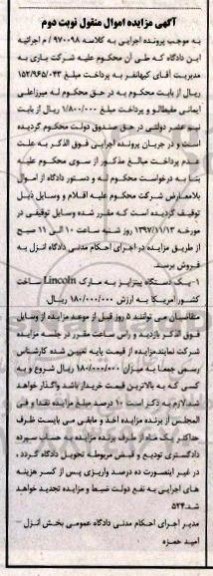 آگهی مزایده اموال منقول نوبت دوم
به موجب پرونده اجرایی به کلاسه ۹۷۰۰۹۸ / م اجرائیه
این دادگاه که طی آن محکوم علیه شرکت یاری به
مدیریت آقای کیهانفر به پرداخت مبلغ ۱۵۲/۹۶۵/۰۴۳
ریال از بابت محکوم به در حق محکوم له میرزاعلی
ایمانی مقیطالو و پرداخت مبلغ ۱/۸۰۰/۰۰۰ ریال از بابت
نیم عشر دولتی در حق صندوق دولت محکوم گردیده
است و در جریان پرونده اجرایی فوق الذکر به علت
عدم پرداخت مبالغ مذکور از سوی محکوم علیه
بنا به درخواست محکوم له و دستور دادگاه از اموال
بلامعارض شرکت محکوم علیه اقلام و وسایل ذیل
توقیف گردیده است که مقرر شده وسایل توقیفی در
مورخه ۱۳۹۷/۱۱/۱۳ روز شنبه ساعت ۱۰ الی ۱۱ صبح
از طریق مزایده در اجرای احکام مدنی دادگاه انزل به
فروش برسد.
۱- یک دستگاه پیترایز به مارک Lincoln ساخت
کشور آمریکا به ارزش ۱۸۰/۰۰۰/۰۰۰ ریال.
متقاضیان می توانند ۵ روز قبل از موعد مزایده از وسایل
فوق الذکر بازدید و راس ساعت مقرر در جلسه مزایده
شرکت نمایند مزایده از قیمت پایه تعیین شده کارشناس
رسمی جمعا به میزان ۱۸۰/۰۰۰/۰۰۰ ریال شروع و به
کسی که به بالاترین قیمت خریدار باشد واگذار خواهد
شد. لازم به ذکر است ۱۰ درصد مبلغ مزایده نقدا و فی
المجلس از برنده مزایده اخذ و مابقی می بایست ظرف
حداکثر یک ماه از طرف برنده مزایده به حساب سپرده
دادگستری تودیع و قبض مربوطه تحویل دادگاه گردد،
در غیر اینصورت ده درصد واریزی پس از کسر هزینه
های اجرایی به نفع دولت ضبط و مزایده تجدید خواهد
شد. ۵۲۴
مدیر اجرای احکام مدنی دادگاه عمومی بخش انزل –
امید حمزه